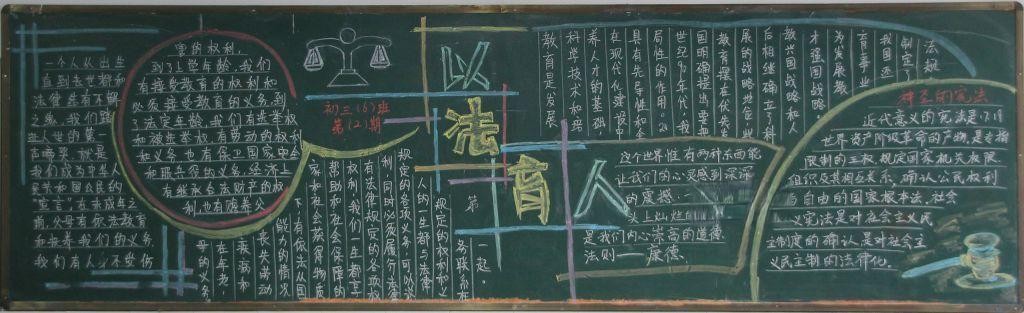 以法育人
初三(6)班
第(2)期
里的权利,
一个人从出生
到了上学年龄,我们
直到去世都和
有接受教育的权利和
法律息息有不解
必须接受教育的义务,到
之缘,我们
了法定年龄,我们有选举权
出人世的第一
和被选举权,有劳动的权利
声啼哭,就是
和义务,也有保卫国家
我们成为中华人
和服兵役的义务,经济上
民共和国公民的
有继承合法财产的权
"宣言",在未成年之
利,也有赡养父
前,父母有依法教育
和抚养我们的义务,
我们有人
母的义务
在年老
丧失劳动
能力的情况
下,有依法从国
家和社会获得物质
帮助和社会保障的
权利,我们一生都享
有法律规定的各项权
利,同时必须履行法律
规定的各项义务,可以说
人的一生都与法律
规定的权利和义
务联系在
一起。
第
法规
制定了
我国还
育事业
为发展教
才强国战略,
教兴国战略和人
后相继确立了科
展的战略地位,
教育摆在优先发
国明确提出要把
世纪80年代,我
局性的作用。20
具有先导性和全
在现代化建设中
养人才的基础,
科学技术和培
教育是发展
这个世界惟有两种东西能
让我们的心灵感到深深
的震撼:
头上灿烂
是我们内心崇高的道德
法则——康德
神圣的宪法
近代意义的宪法是17、18
世界资产阶级革命的产物,是专指
限制的王权,规定国家机关权限
组织及其相互关系,确认公民权利
与自由的国家根本法,社会
义宪法是对社会主义民
主制度的确认是对社会主
义民主制的法律化。